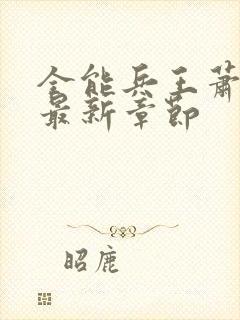 全能兵王萧
最新章节
昭鹿